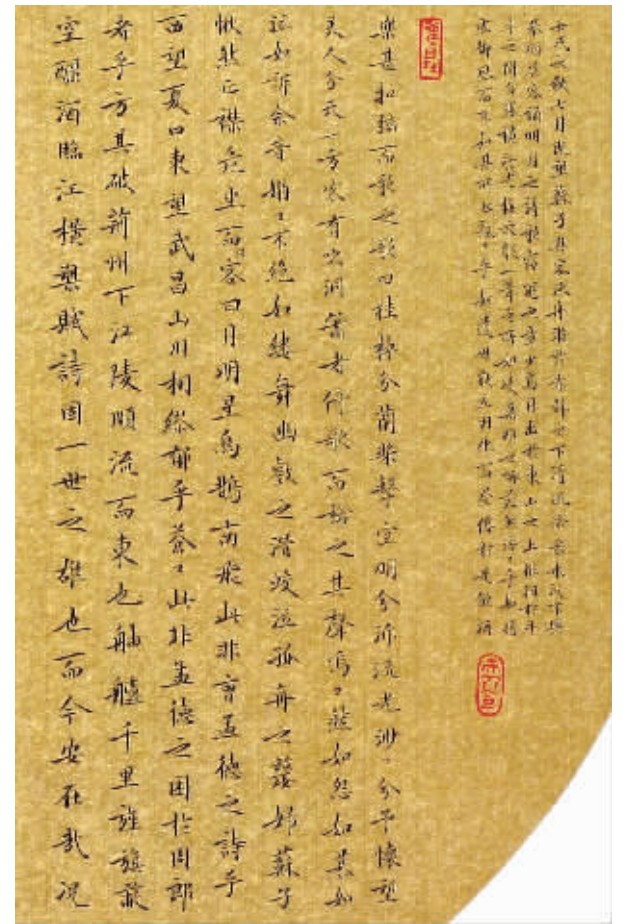 壬戌之秋七月既望蘇子與客泛舟游於赤壁之下清風徐來水波不興
舉酒屬客誦明月之詩歌窈窕之章少焉月出於東山之上徘徊於斗
牛之間白露橫江水光接天縱一葦之所如凌萬頃之茫然浩〻乎如馮
虛御風而不知其所止飄〻乎如遺世獨立羽化而登僊於是飲酒
樂甚扣舷而歌之歌曰桂棹兮蘭槳擊空明兮泝流光渺〻兮予懷望
美人兮天一方客有吹洞簫者倚歌而和之其聲嗚〻然如怨如慕如
泣如訴余音嫋〻不絕如縷舞幽壑之潛蛟泣孤舟之嫠婦蘇子
愀然正襟危坐而客曰月明星烏鵲南飛此非曹孟德之詩乎
西望夏口東望武昌山川相繆郁乎蒼〻此非孟德之困於周郎
者乎方其破荊州下江陵順流而東也舳艫千里旌旗蔽
空釃酒臨江橫槊賦詩固一世之雄也而今安在哉況